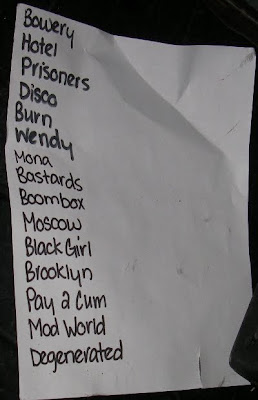 Bowery
Hotel
Prisoners
Disco
Burn
Wendy
Mona
Bastards
Boombox
Moscow
Black Girl
Brooklyn
Pay 2 Cum
Mad World
Degenerated